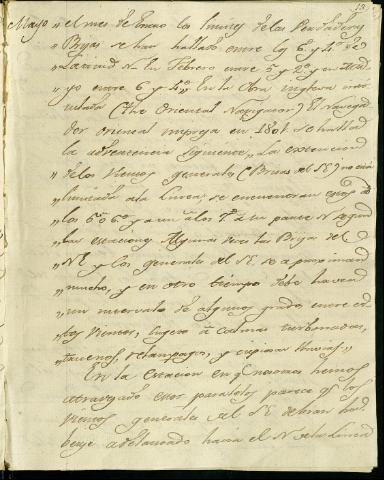 Mayo „ el mes de Enero los limites de las Perdidas y
„ Brisas se han hallado entre los 6 y 4° de
„ Latitud N. en Febrero entre 5 y 2° y en Ma-
„ yo entre 6 y 4°„ En la Obra inglesa inti-
„ tulada (The Oriental Navigator) El Navega-
„ dor oriental impresa en 1801. se halla
„ la advertencia siguiente „ La extencion
„ de los Vientos generales (Brisas del SE) no está
„ limitada a la Linea; se encuentran
„ los 5° o 6° y aun a los 7° a su parte N segun
„ las estaciones Algunas veces las Brisas del
„ NE y los generales del SE se aproximan
„ mucho, y en otro tiempo debe haver
„ un intervalo de algunos grados entre es-
„ tos vientos, sugeto á calmas turbonadas,
„ truenos, relampagos, y copiosas lluvias.„
En la estacion en q.e nosotros hemos
atravezado estos paralelos parece q.e los
vientos generales del SE debian hu-
berse adelantado hacia el N de la Linea